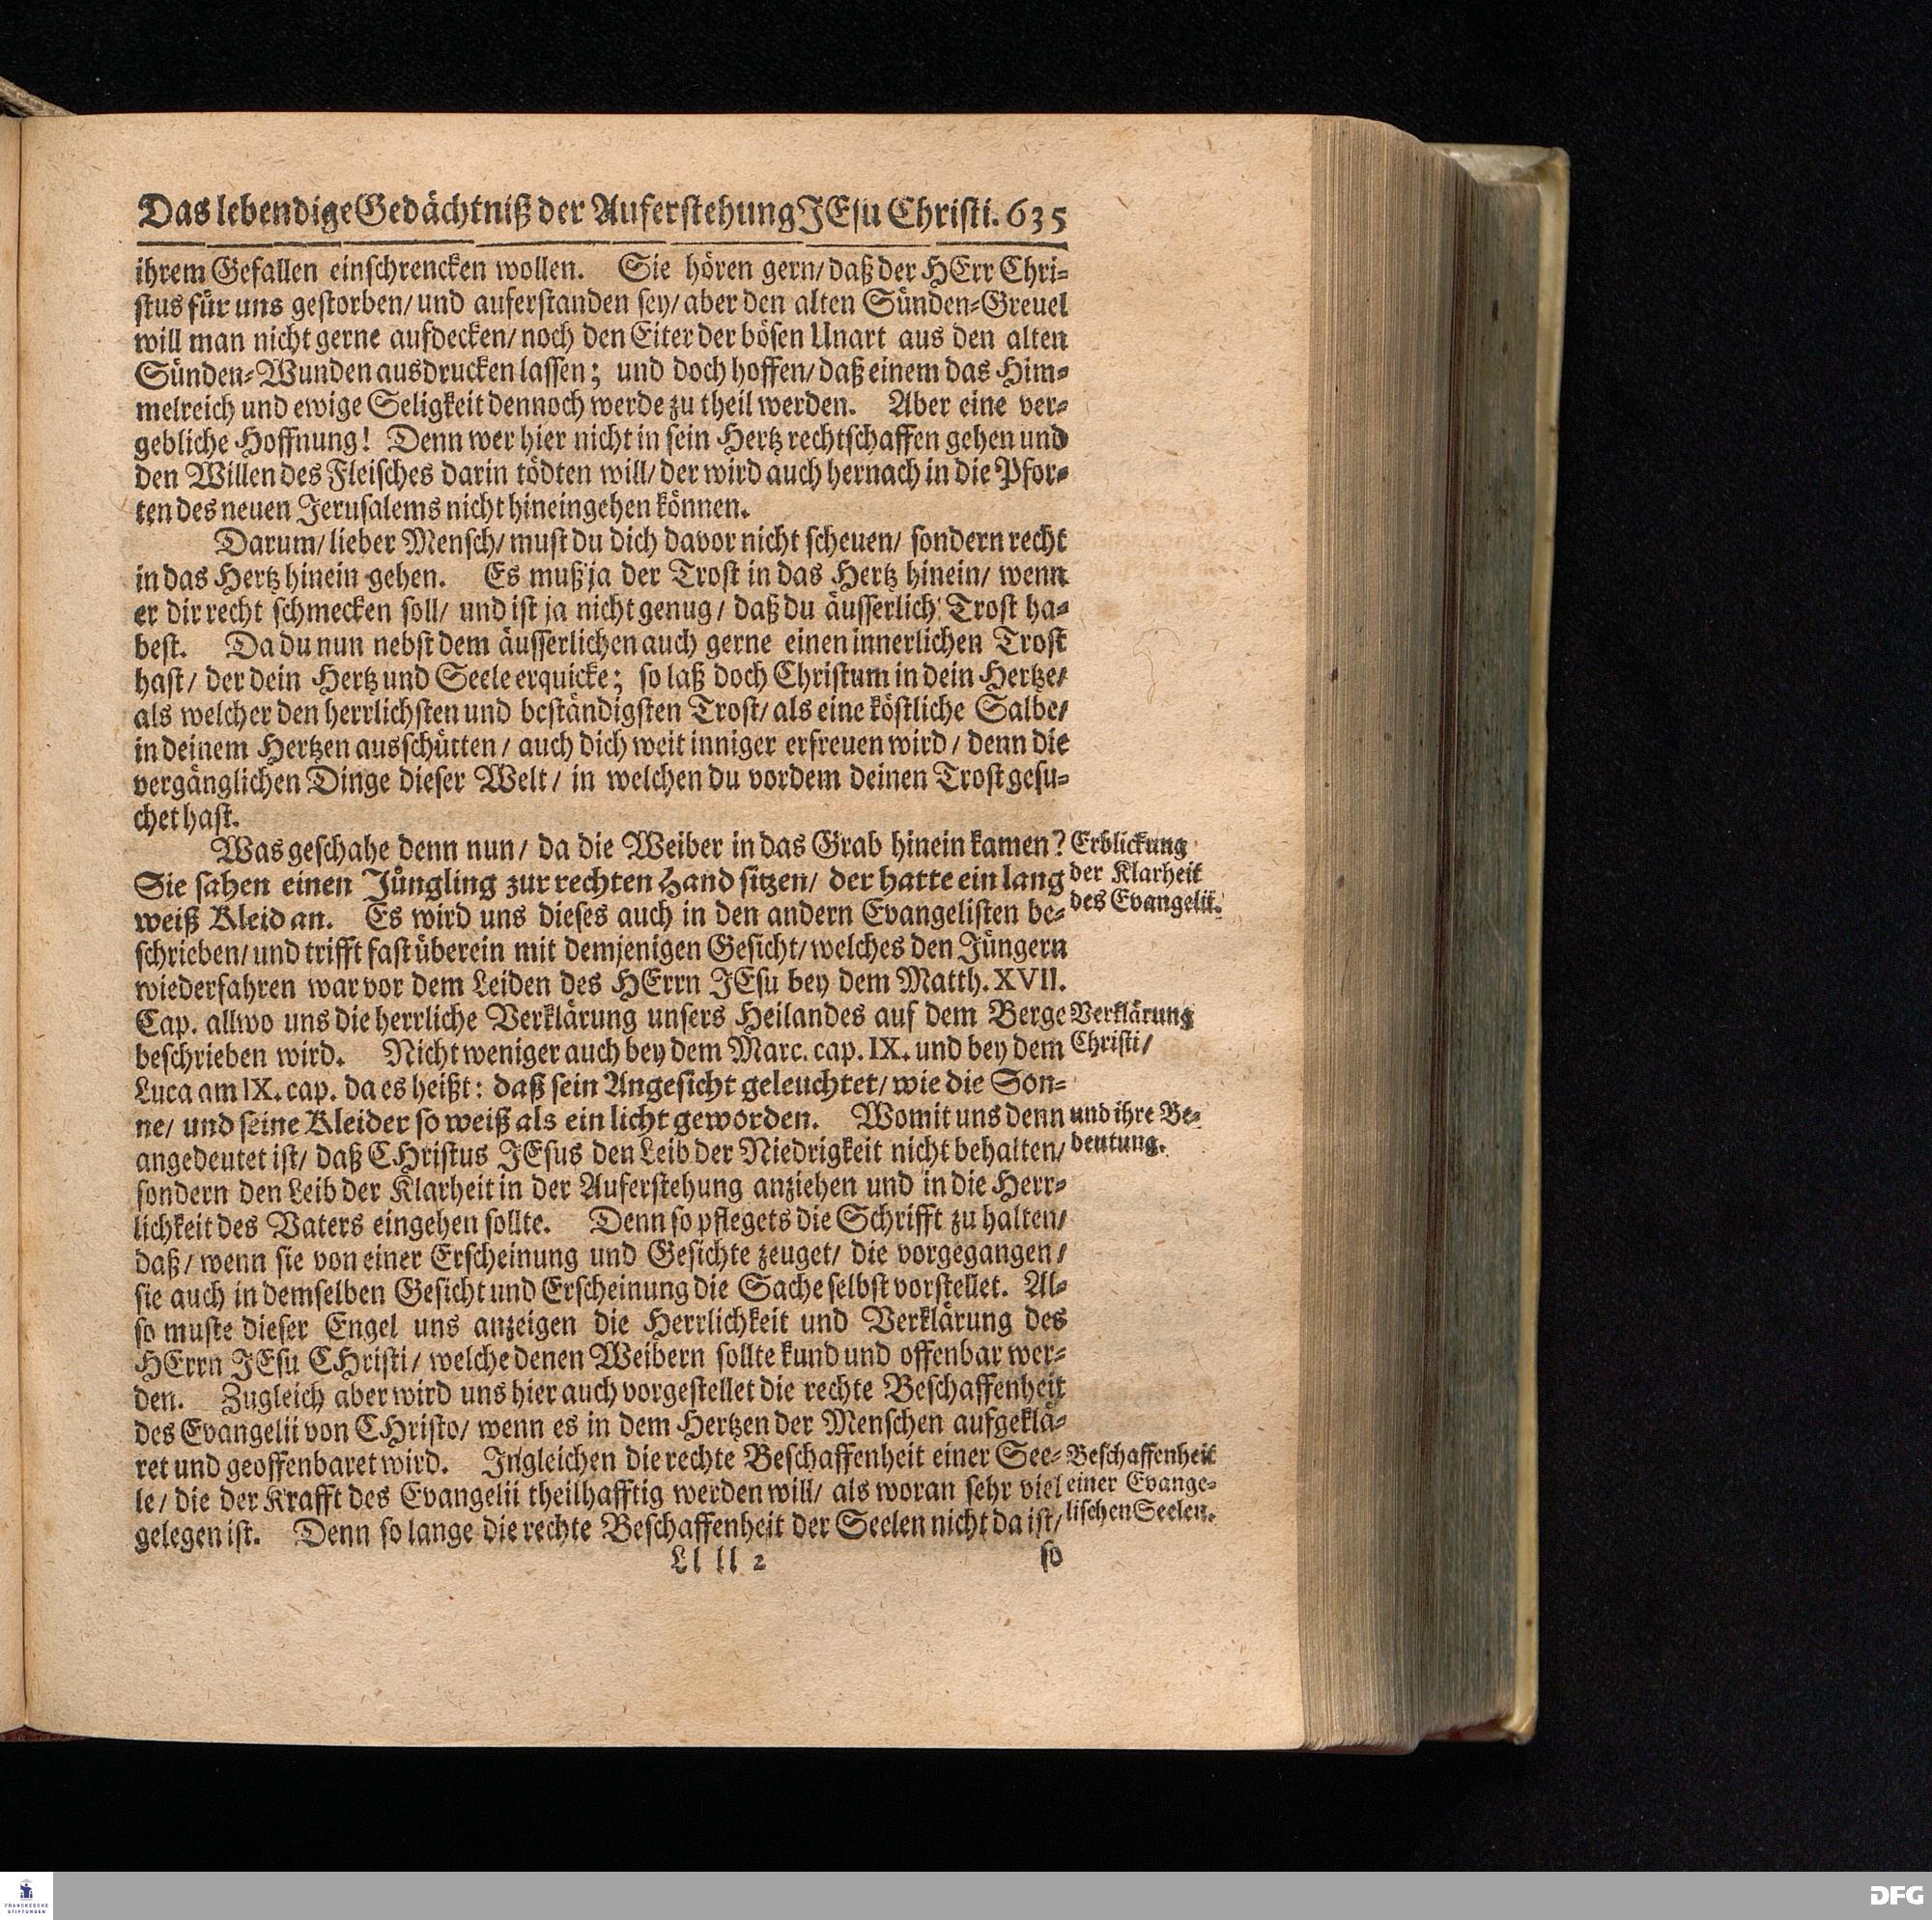 Das lebendige Gedächtniß der Auferstehung JEsu Christi. 635
ihrem Gefallen einschrencken wollen. Sie hören gern/ daß der HErr Chri-
stus für uns gestorben/ und auferstanden sey/ aber den alten Sünden-Greuel
will man nicht gerne aufdecken/ noch den Eiter der bösen Unart aus den alten
Sünden-Wunden ausdrucken lassen; und doch hoffen/ daß einem das Him-
melreich und ewige Seligkeit dennoch werde zu theil werden. Aber eine ver-
gebliche Hoffnung! Denn wer hier nicht in sein Hertz rechtschaffen gehen und
den Willen des Fleisches darin tödten will/ der wird auch hernach in die Pfor-
ten des neuen Jerusalems nicht hineingehen können.
Darum/ lieber Mensch/ must du dich davor nicht scheuen/ sondern recht
in das Hertz hinein gehen. Es muß ja der Trost in das Hertz hinein/ wenn
er dir recht schmecken soll/ und ist ja nicht genug/ daß du äusserlich Trost ha-
best. Da du nun nebst dem äusserlichen auch gerne einen innerlichen Trost
hast/ der dein Hertz und Seele erquicke; so laß doch Christum in dein Hertze/
als welcher den herrlichsten und beständigsten Trost/ als eine köstliche Salbe/
in deinem Hertzen ausschütten/ auch dich weit inniger erfreuen wird/ denn die
vergänglichen Dinge dieser Welt/ in welchen du vordem deinen Trost gesu-
chet hast.
Was geschahe denn nun/ da die Weiber in das Grab hinein kamen?
Erblickung
Sie sahen einen Jüngling zur rechten Hand sitzen/ der hatte ein lang
der Klarheit
weiß Kleid an. Es wird uns dieses auch in den andern Evangelisten be-
des Evangelii.
schrieben/ und trifft fast überein mit demjenigen Gesicht/ welches den Jüngern
wiederfahren war vor dem Leiden des HErrn JEsu bey dem Matth. XVII.
Cap. allwo uns die herrliche Verklärung unsers Heilandes auf dem Berge
Verklärung
beschrieben wird. Nicht weniger auch bey dem Marc. cap. IX. und bey dem
Christi/
Luca am IX. cap. da es heißt: daß sein Angesicht geleuchtet/ wie die Son-
ne/ und seine Kleider so weiß als ein licht geworden. Womit uns denn
und ihre Be-
angedeutet ist/ daß CHristus JEsus den Leib der Niedrigkeit nicht behalten/
deutung.
sondern den Leib der Klarheit in der Auferstehung anziehen und in die Herr-
lichkeit des Vaters eingehen sollte. Denn so pflegets die Schrifft zu halten/
daß/ wenn sie von einer Erscheinung und Gesichte zeuget/ die vorgegangen/
sie auch in demselben Gesicht und Erscheinung die Sache selbst vorstellet. Al-
so muste dieser Engel uns anzeigen die Herrlichkeit und Verklärung des
HErrn JEsu CHristi/ welche denen Weibern sollte kund und offenbar wer-
den. Zugleich aber wird uns hier auch vorgestellet die rechte Beschaffenheit
des Evangelii von CHristo/ wenn es in dem Hertzen der Menschen aufgeklä-
ret und geoffenbaret wird. Ingleichen die rechte Beschaffenheit einer See-
Beschaffenheit
le/ die der Krafft des Evangelii theilhafftig werden will/ als woran sehr viel
einer Evange-
gelegen ist. Denn so lange die rechte Beschaffenheit der Seelen nicht da ist/
lischen Seelen.
Ll ll 2
so
FRANCKESCHE
STIFTUNGEN
DFG